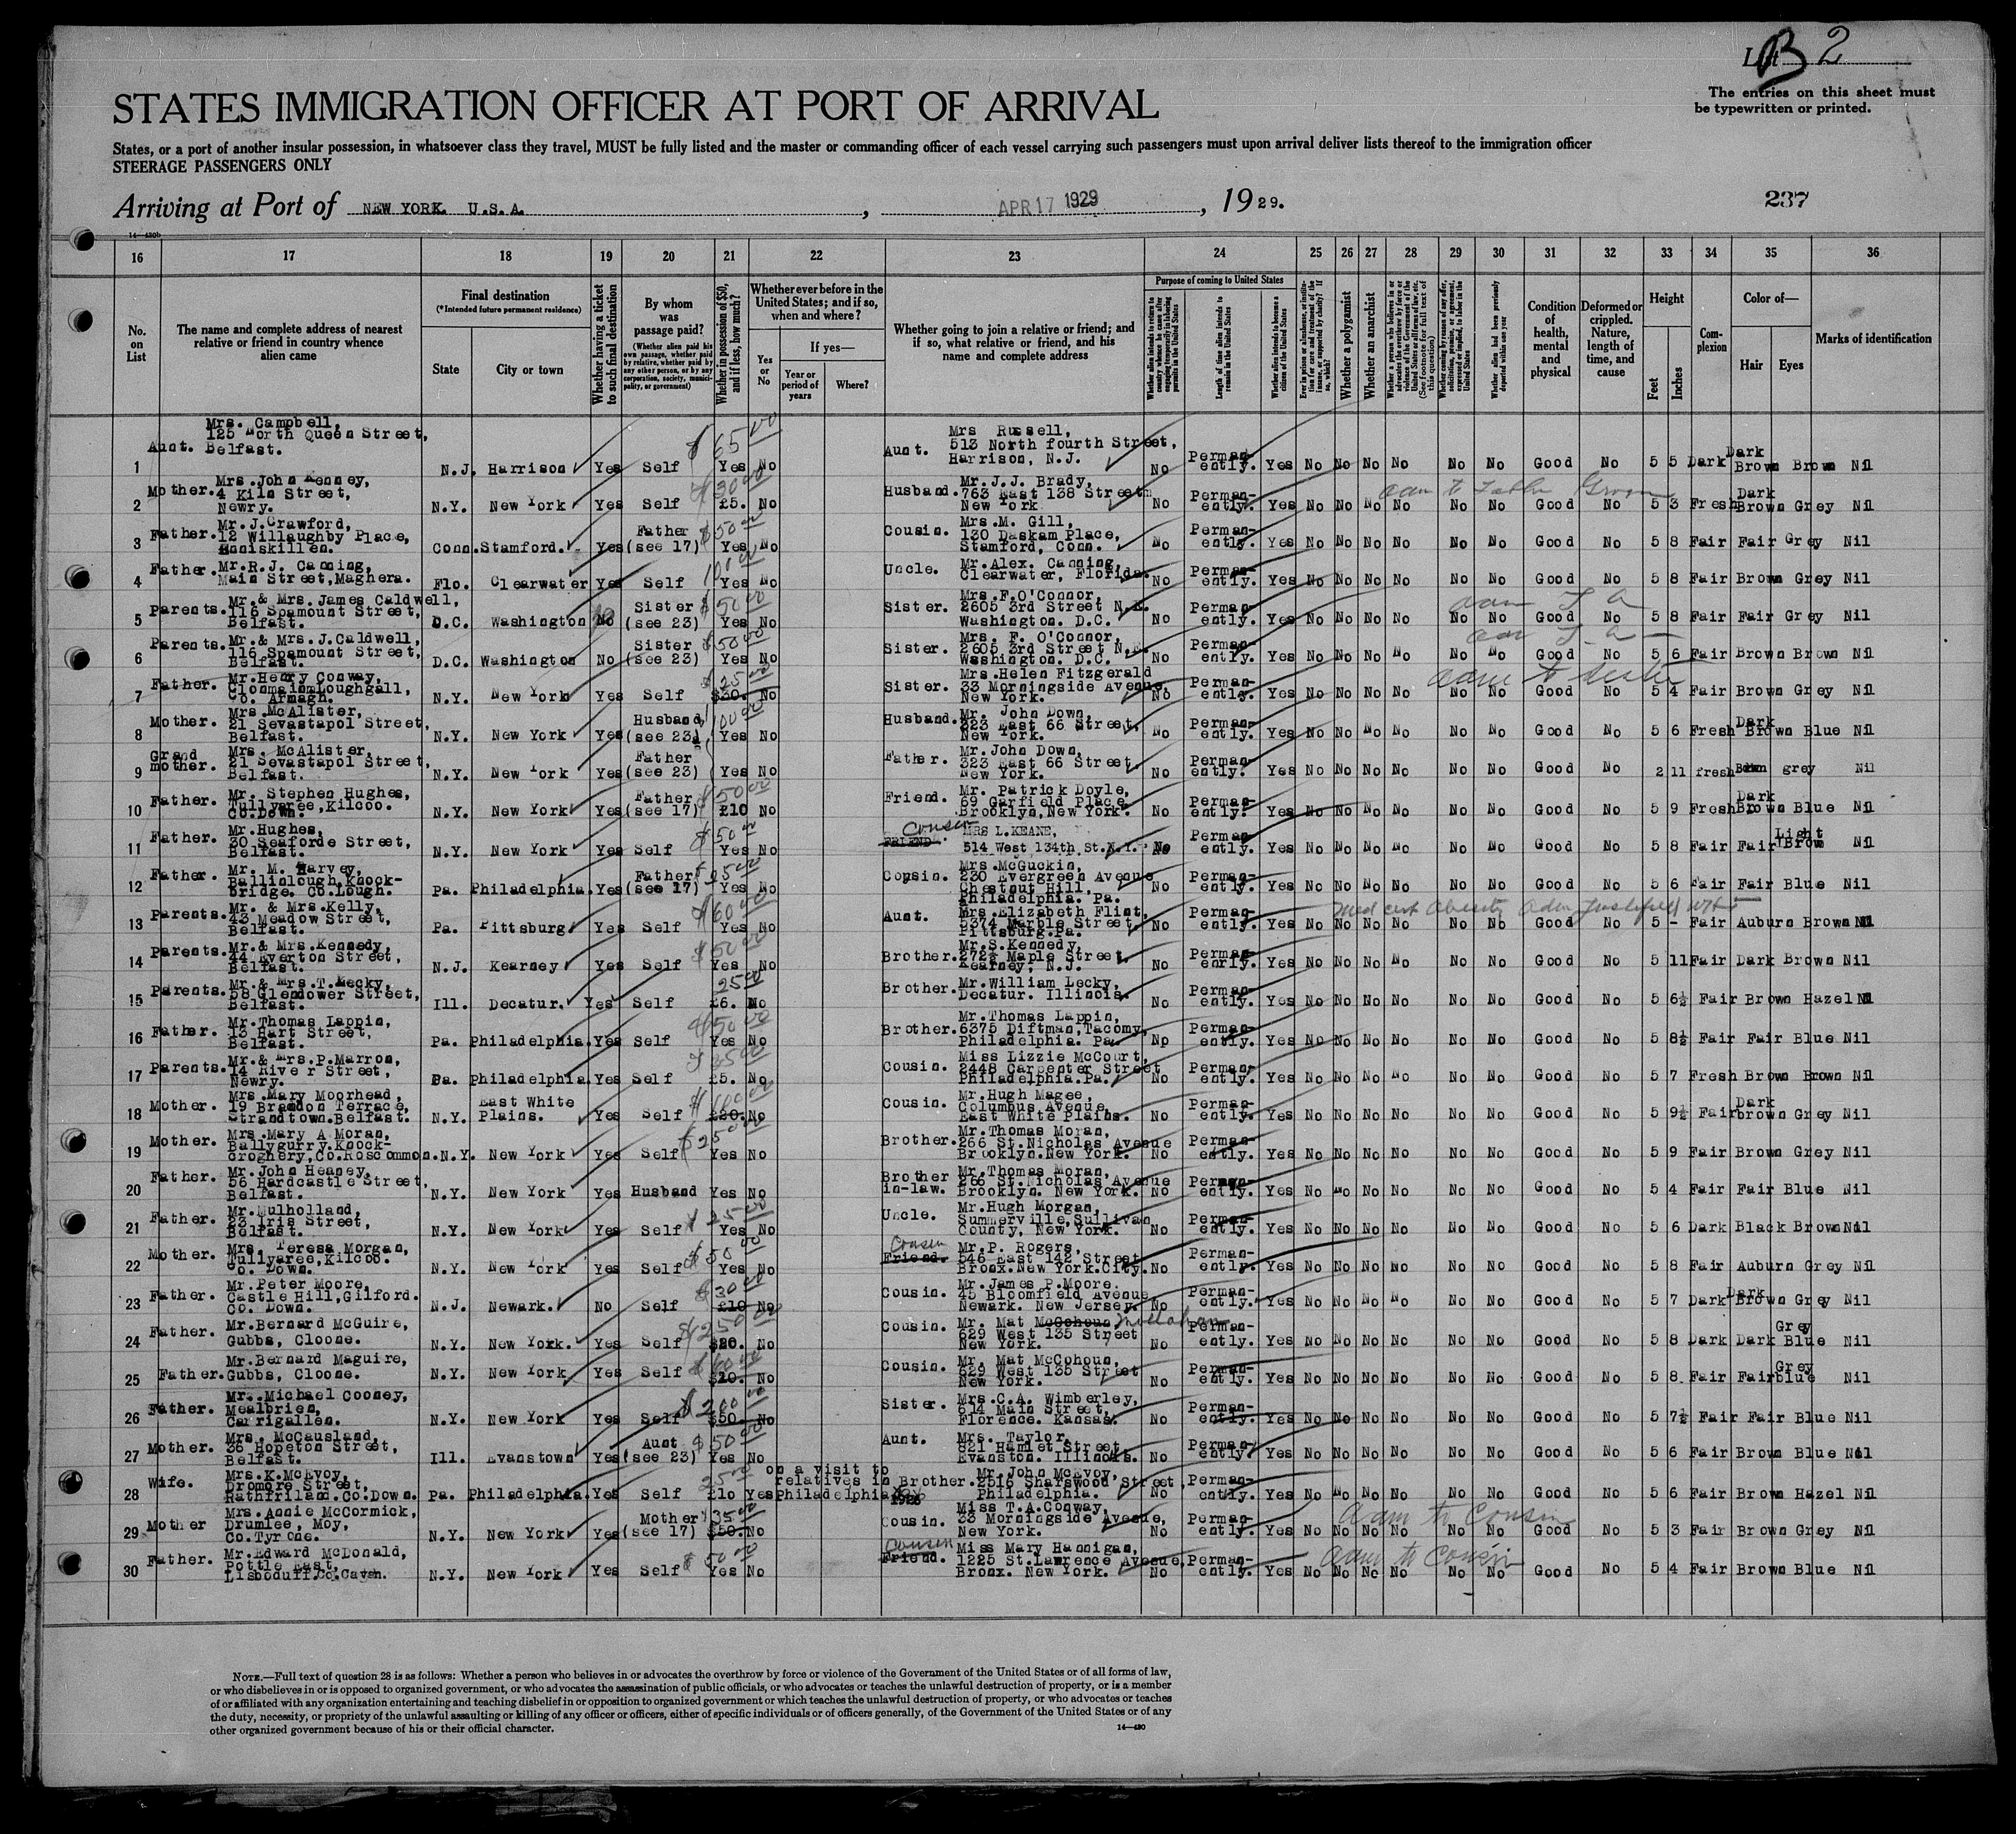 List B 2
The entries on this sheet must
be typewritten or printed.
STATES IMMIGRATION OFFICER AT PORT OF ARRIVAL
States, or a port of another insular possession, in whatsoever class they travel, MUST be fully listed and the master or commanding officer of each vessel carrying such passengers must upon arrival deliver lists thereof to the immigration officer
STEERAGE PASSENGERS ONLY
Arriving at Port of NEW YORK. U.S.A. , APR 17 1929 , 1929.
237
14—430b
16 17 18 19 20 21 22 23 24 25 26 27 28 29 30 31 32 33 34 35 36
No. on List
The name and complete address of nearest relative or friend in country whence alien came
Final destination
(*Intended future permanent residence)
State
City or town
Whether having a ticket to such final destination
By whom was passage paid?
(Whether alien paid his own passage, whether paid by relative, whether paid by any other person, or by any corporation, society, municipality, or government)
Whether in possession of $50, and if less, how much?
Whether ever before in the United States; and if so, when and where?
Yes or No
If yes—
Year or period of years
Where?
Whether going to join a relative or friend; and if so, what relative or friend, and his name and complete address
Purpose of coming to United States
Length of time alien intends to remain in the United States
Whether alien intends to become a citizen of the United States
Whether a polygamist
Whether an anarchist
Condition of health, mental and physical
Deformed or crippled. Nature, length of time, and cause
Height
Feet
Inches
Complexion
Color of—
Hair
Eyes
Marks of identification
1 Aunt. Mrs. Campbell, 125 North Queen Street, Belfast. N.J. Harrison Yes Self $65.00 Yes No Aunt. Mrs Russell, 513 North fourth Street, Harrison, N.J. No Permanently. Yes No No No No No No Good No 5 5 Dark Dark Brown Brown Nil
2 Mother. Mrs. John Kenney, 4 Kiln Street, Newry. N.Y. New York Yes Self $30.00 £5. No Husband. Mr. J.J. Brady, 763 East 138 Street New York No Permanently. Yes No No No No No No Good No 5 3 Fresh Dark Brown Grey Nil
3 Father. Mr. J. Crawford, 12 Willaughby Place, Enniskillen. Conn. Stamford. Yes Father (see 17) $50.00 Yes No Cousin. Mrs. M. Gill, 130 Daskam Place, Stamford, Conn. No Permanently. Yes No No No No No No Good No 5 8 Fair Fair Grey Nil
4 Father. Mr. R.J. Canning, Main Street, Maghera. Flo. Clearwater Yes Self 100.00 Yes No Uncle. Mr. Alex. Canning, Clearwater, Florida. No Permanently. Yes No No No No No No Good No 5 8 Fair Brown Grey Nil
5 Parents. Mr. & Mrs. James Caldwell, 116 Spamount Street, Belfast. D.C. Washington No Sister (see 23) $50.00 Yes No Sister. Mrs. F. O'Connor, 2605 3rd Street N.E. Washington. D.C. No Permanently. Yes No No No No No No Good No 5 8 Fair Fair Grey Nil
6 Parents. Mr. & Mrs. J. Caldwell, 116 Spamount Street, Belfast. D.C. Washington No Sister (see 23) $50.00 Yes No Sister. Mrs. F. O'Connor, 2605 3rd Street N.E. Washington. D.C. No Permanently. Yes No No No No No No Good No 5 6 Fair Brown Brown Nil
7 Father. Mr. Henry Conway, Clonmain Loughgall, Co. Armagh. N.Y. New York Yes Self $25.00 $30. No Sister. Mrs. Helen Fitzgerald 33 Morningside Avenue, New York. No Permanently. Yes No No No No No No Good No 5 4 Fair Brown Grey Nil
adm to sister
8 Mother. Mrs. McAlister, 21 Sevastapol Street, Belfast. N.Y. New York Yes Husband (see 23) 100.00 Yes No Husband. Mr. John Down, 323 East 66 Street, New York. No Permanently. Yes No No No No No No Good No 5 6 Fresh Dark Brown Blue Nil
9 Grand mother. Mrs. McAlister, 21 Sevastapol Street, Belfast. N.Y. New York Yes Father (see 23) Yes No Father. Mr. John Down, 323 East 66 Street. New York. No Permanently. Yes No No No No No No Good No 2 11 fresh grey Nil
10 Father. Mr. Stephen Hughes, Tullyaree, Kilcoo. Co. Down. N.Y. New York Yes Father (see 17) $50.00 £10 No Friend. Mr. Patrick Doyle, 69 Garfield Place, Brooklyn, New York. No Permanently. Yes No No No No No No Good No 5 9 Fresh Dark Brown Blue Nil
11 Father. Mr. Hughes, 30 Seaforde Street, Belfast. N.Y. New York Yes Self $50.00 Yes No FRIEND. Cousin MRS L. KEANE, 514 West 134th St. N.Y. No Permanently. Yes No No No No No No Good No 5 8 Fair Fair Light Brown Nil
12 Father. Mr. M. Harvey, Ballinlough, Knock-bridge. Co. Lough. Pa. Philadelphia. Yes Father (see 17) $25.00 Yes No Cousin. Mrs. McGuckin, 230 Evergreen Avenue Chestnut Hill, Philadelphia. Pa. No Permanently. Yes No No No No No No Good No 5 6 Fair Fair Blue Nil
13 Parents. Mr. & Mrs. Kelly, 43 Meadow Street, Belfast. Pa. Pittsburg Yes Self $60.00 Yes No Aunt. Mrs. Elizabeth Flint, 5374 Marble Street, Pittsburg. Pa. No Permanently. Yes No No No No No No Good No 5 - Fair Auburn Brown Nil
Med cert Obesity
14 Parents. Mr. & Mrs. Kennedy, 44 Everton Street, Belfast. N.J. Kearney Yes Self $50.00 Yes No Brother. Mr. S. Kennedy, 272½ Maple Street, Kearney, N.J. No Permanenrly. Yes No No No No No No Good No 5 11 Fair Dark Brown Nil
15 Parents. Mr. & Mrs. T. Mecky, 58 Glendower Street, Belfast. Ill. Decatur. Yes Self 25.00 £6. No Brother. Mr. William Lecky, Decatur. Illinois. No Permanently. Yes No No No No No No Good No 5 6½ Fair Brown Hazel Nil
16 Father. Mr. Thomas Lappin, 13 Hart Street, Belfast. Pa. Philadelphia. Yes Self $50.00 Yes No Brother. Mr. Thomas Lappin, 6375 Diftman, Tacomy, Philadelphia. Pa. No Permanently. Yes No No No No No No Good No 5 8½ Fair Fair Blue Nil
17 Parents. Mr. & Mrs. P. Marron, 14 River Street, Newry. Pa. Philadelphia. Yes Self $35.00 £5. No Cousin. Miss Lizzie McCourt, 2448 Carpenter Street Philadelphia. Pa. No Permanently. Yes No No No No No No Good No 5 7 Fresh Brown Brown Nil
18 Mother. Mrs. Mary Moorhead, 19 Brandon Terrace, Strandtown. Belfast. N.Y. East White Plains. Yes Self $100.00 £20. No Cousin. Mr. Hugh Magee, Columbus Avenue, East White Plains. No Permanently. Yes No No No No No No Good No 5 9½ Fair Dark brown Grey Nil
19 Mother. Mrs. Mary A Moran, Ballygurry. Knock-croghery, Co. Roscommon. N.Y. New York Yes Self $25.00 Yes No Brother. Mr. Thomas Moran, 266 St. Nicholas Avenue Brooklyn. New York. No Permanently. Yes No No No No No No Good No 5 9 Fair Brown Grey Nil
20 Father. Mr. John Heaney, 56 Hardcastle Street, Belfast. N.Y. New York Yes Husband Yes No Brother in-law. Mr. Thomas Moran, 266 St. Nicholas Avenue Brooklyn. New York. No Permanently. Yes No No No No No No Good No 5 4 Fair Fair Blue Nil
21 Father. Mr. Mulholland, 23 Iris Street, Belfast. N.Y. New York Yes Self $25.00 Yes No Uncle. Mr. Hugh Morgan, Summerville, Sullivan County, New York. No Permanently. Yes No No No No No No Good No 5 6 Dark Black Brown Nil
22 Mother. Mrs. Teresa Morgan, Tullyaree, Kilcoo. Co. Down. N.Y. New York Yes Self $50.00 Yes No Friend. Cousin Mr. P. Rogers, 546 East 142 Street Bronx. New York. City. No Permanently. Yes No No No No No No Good No 5 8 Fair Auburn Grey Nil
23 Father. Mr. Peter Moore, Castle Hill, Gilford. Co. Down. N.J. Newark. No Self $30.00 £10 No Cousin. Mr. James P. Moore. 45 Bloomfield Avenue, Newark. New Jersey. No Permanently. Yes No No No No No No Good No 5 7 Dark Dark Brown Grey Nil
24 Father. Mr. Bernard McGuire, Gubbs, Cloone. N.Y. New York. Yes Self $250.00 $20. No Cousin. Mr. Mat McCohoun, 629 West 135 Street New York. No Permanently. Yes No No No No No No Good No 5 8 Dark Dark Grey Blue Nil
25 Father. Mr. Bernard Maguire, Gubbs, Cloone. N.Y. New York Yes Self $60.00 $20. No Cousin. Mr. Mat McCohoun, 629 West 135 Street New York. No Permanently. Yes No No No No No No Good No 5 8. Fair Fair Grey blue Nil
26 Father. Mr. Michael Cooney, Mealbrien, Carrigallen. N.Y. New York Yes Self $200.00 $50. No Sister. Mrs. C.A. Wimberley, 614 Main Street, Florence. Kansas. No Permanently. Yes No No No No No No Good No 5 7½ Fair Fair Blue Nil
27 Mother. Mrs. McCausland, 36 Hopeton Street, Belfast. Ill. Evanstown Yes Aunt (see 23) $50.00 Yes No Aunt. Mrs. Taylor, 821 Hamlet Street, Evanston. Illinois. No Permanently. Yes No No No No No No Good No 5 6 Fair Brown Blue Nil
28 Wife. Mrs. K. McEvoy, Dromore Street, Rathfriland. Co. Down. Pa. Philadelphia. Yes Self 25.00 £10 Yes on a visit to relatives in Philadelphia 1926 Brother. Mr. John McEvoy, 2516 Sharswood Street, Philadelphia. No Permanently. Yes No No No No No No Good No 5 6 Fair Brown Hazel Nil
29 Mother Mrs. Annie McCormick, Drumlee, Moy, Co. Tyrone. N.Y. New York Yes Mother (see 17) $35.00 $50. No Cousin. Miss T.A. Conway, 33 Morningside Avenue, New York. No Permanently. Yes No No No No No No Good No 5 3 Fair Brown Grey Nil
Adm to Cousin
30 Father. Mr. Edward McDonald, Pottle East, Lisboduff. Co. Cavan. N.Y. New York Yes Self $50.00 Yes No Friend. Cousin Miss Mary Hannigan, 1225 St. Lawrence Avenue, Bronx. New York. No Permanently. Yes No No No No No No Good No 5 4 Fair Brown Blue Nil
Adm to Cousin
NOTE.—Full text of question 28 is as follows: Whether a person who believes in or advocates the overthrow by force or violence of the Government of the United States or of all forms of law,
or who disbelieves in or is opposed to organized government, or who advocates the assassination of public officials, or who advocates or teaches the unlawful destruction of property, or is a member
of or affiliated with any organization entertaining and teaching disbelief in or opposition to organized government or which teaches the unlawful destruction of property, or who advocates or teaches
the duty, necessity, or propriety of the unlawful assaulting or killing of any officer or officers, either of specific individuals or of officers generally, of the Government of the United States or of any
other organized government because of his or their official character.
14—430